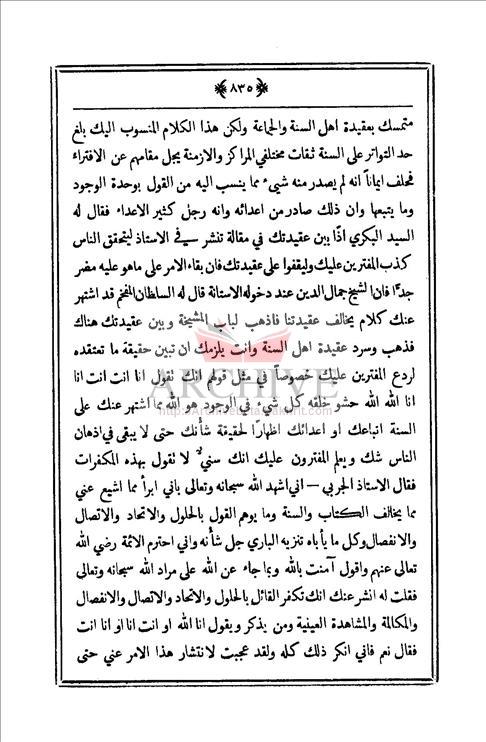 ﴿٨٣٥﴾
متمسك بعقيدة اهل السنة والجماعة ولكن هذا الكلام المنسوب اليك بلغ
حد التواتر على السنة ثقات مختلفي المراكز والازمنة يجل مقامهم عن الافتراء
فحلف ايماناً انه لم يصدر منه شيء مما ينسب اليه من القول بوحدة الوجود
وما يتبعها وان ذلك صادر من اعدائه وانه رجل كثير الاعداء فقال له
السيد البكري اذًا بين عقيدتك في مقالة تنشر في الاستاذ ليتحقق الناس
كذب المفترين عليك وليقفوا على عقيدتك فان بقاء الامر على ماهو عليه مضر
جدًا فان الشيخ جمال الدين عند دخوله الاستانة قال له السلطان المفخم قد اشتهر
عنك كلام يخالف عقيدتنا فاذهب لباب المشيخة وبين عقيدتك هناك
فذهب وسرد عقيدة اهل السنة وانت يلزمك ان تبين حقيقة ما تعتقده
لردع المفترين عليك خصوصاً في مثل قولهم انك تقول انا انت انت انا
انا الله الله حشو خلقه كل شيء في الوجود هو الله مما اشتهر عنك على
السنة اتباعك او اعدائك اظهارًا لحقيقة شأنك حتى لا يبقى في اذهان
الناس شك ويعلم المفترون عليك انك سني لا تقول بهذه المكفرات
فقال الاستاذ الجربي – اني اشهد الله سبحانه وتعالى باني ابرأ مما اشيع عني
مما يخالف الكتاب والسنة وما يوهم القول بالحلول والاتحاد والاتصال
والانفصال وكل ما يأباه تنزيه الباري جل شأنه واني احترم الائمة رضي الله
تعالى عنهم واقول آمنت بالله وبما جاء عن الله على مراد الله سبحانه وتعالى
فقلت له انشر عنك انك تكفر القائل بالحلول والاتحاد والاتصال والانفصال
والمكالمة والمشاهدة العينية ومن يذكر ويقول انا الله او انت انا او انا انت
فقال نعم فاني انكر ذلك كله ولقد عجبت لانتشار هذا الامر عني حتى
ARCHIVE